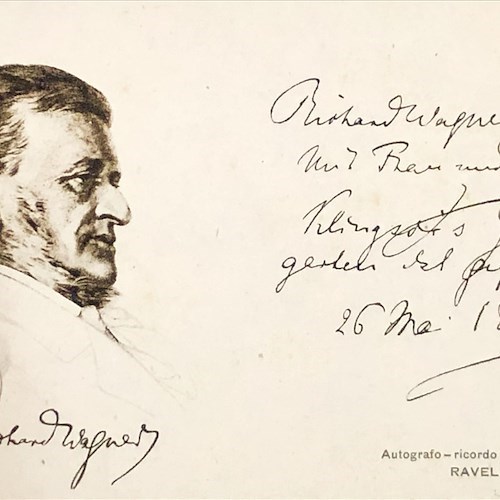 Richard Wagne
mit Frau und
Klingsor's
garten ist
26 Mai 18
chard Wagner
Autografo – ricordo
RAVEL